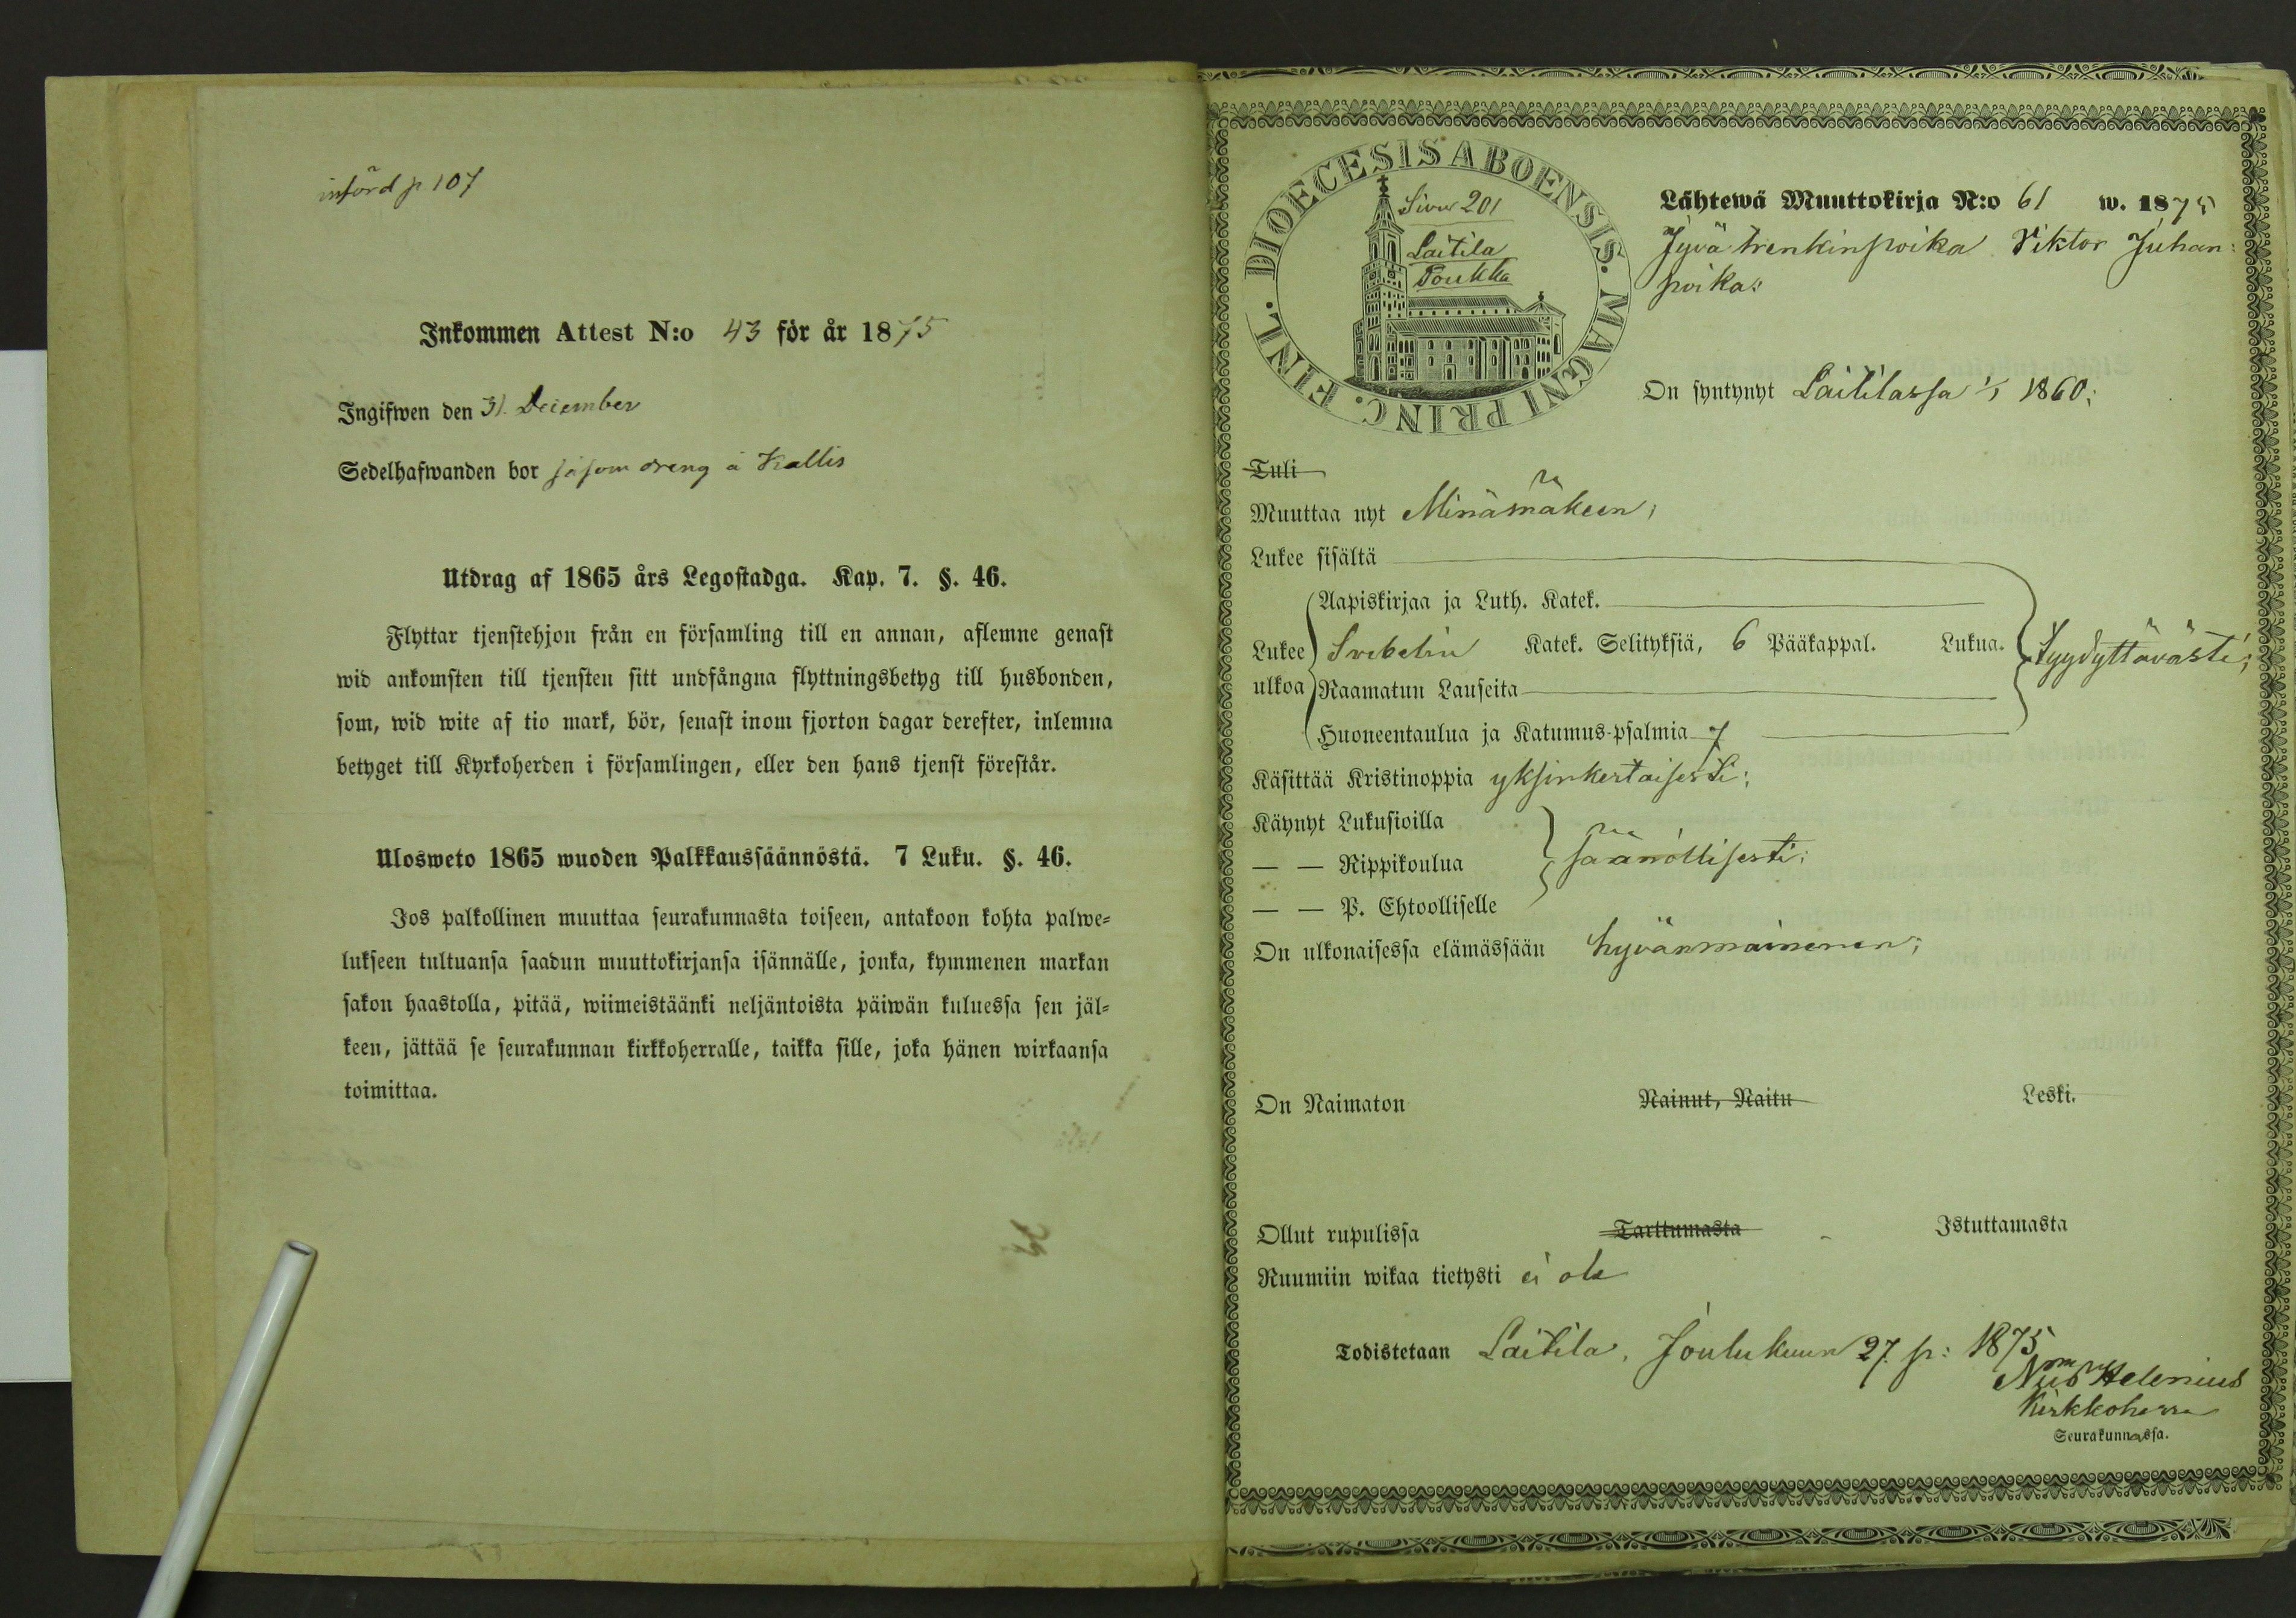 införd p 107
Inkommen Attest N:o 43 för år 1875
Ingifwen den 31. December
Sedelhafwanden bor såsom dreng å Kallis
Utdrag af 1865 års Legostadga. Kap. 7. §. 46.
Flyttar tjenstehjon från en församling till en annan, aflemne genast
wid ankomsten till tjensten sitt undfångna flyttningsbetyg till husbonden,
som, wid wite af tio mark, bör, senast inom fjorton dagar derefter, inlemna
betyget till Kyrkoherden i församlingen, eller den hans tjenst förestår.
Ulosweto 1865 wuoden Palkkaussäännöstä. 7 Luku. §. 46.
Jos palkollinen muuttaa seurakunnasta toiseen, antakoon kohta palwe-
lukseen tultuansa saadun muuttokirjansa isännälle, jonka, kymmenen markan
sakon haastolla, pitää, wiimeistäänki neljäntoista päiwän kuluessa sen jäl-
keen, jättää se seurakunnan kirkkoherralle, taikka sille, joka hänen wirkaansa
toimittaa.
DIOECESIS ABOENSIS. MAGNI PRINC. FINL.
Sivu 201
Laitila
Toukka
Lähtewä Muuttokirja N:o 61 w. 1875
Jyvä trenkinpoika Viktor Juhan:
poika:
On syntynyt Laitilassa 1/1 1860;
Tuli
Muuttaa nyt Minämäkeen;
Lukee sisältä
Aapiskirjaa ja Luth. Katek.
Lukee Svebelin Katek. Selityksiä, 6 Pääkappal. Lukua. Tyydyttävästi;
ulkoa Raamatun Lauseita
Huoneentaulua ja Katumus-psalmia 7
Käsittää Kristinoppia yksinkertaisesti;
Käynyt Lukusioilla
— — Rippikoulua säänöllisesti;
— — P. Ehtoolliselle
On ulkonaisessa elämässään hyvänmaineinen;
On Naimaton Nainut, Naitu Leski.
Ollut rupulissa Tarttumasta Istuttamasta
Ruumiin wikaa tietysti ei ole
Todistetaan Laitila, Joulukuun 27 p: 1875
Helenius
Kirkkoherra
Seurakunnassa.